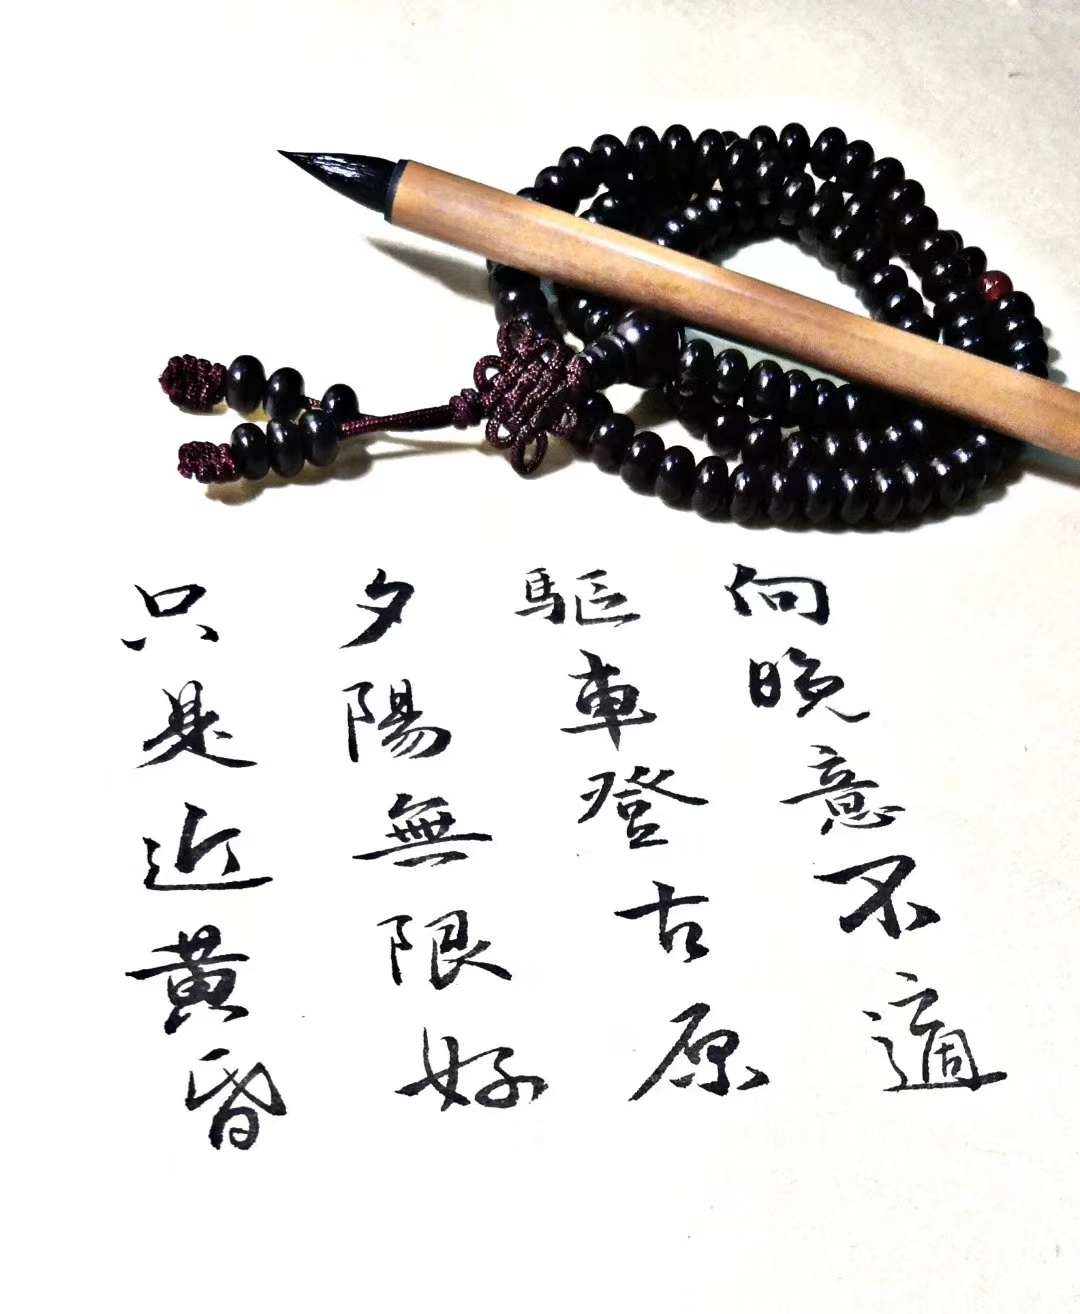 向晚意不適
驅車登古原
夕陽無限好
只是近黃昏